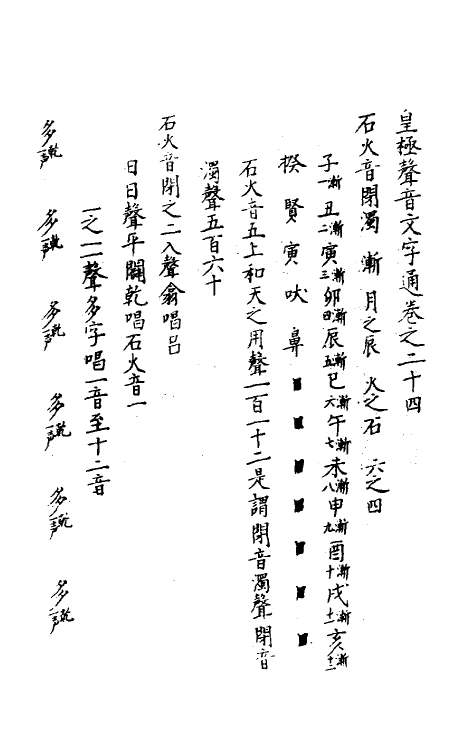 皇極聲音文字通卷之二十四
石火音閉濁 漸 月之辰 火之石 六之四
子一漸丑二漸寅三漸卯四漸辰五漸巳六漸午七漸未八漸申九漸酉十漸戌十一漸亥十二漸
揆 賢 寅 吠 鼻 ■ ■ ■ ■ ■ ■ ■
石火音五上和天之用聲一百一十二是謂閉音濁聲閉音
濁聲五百六十
石火音閉之二入聲翕唱呂
日日聲平闢乾唱石火音一
一之一聲多字唱一音至十二音
多乾一聲 多乾一聲 多乾一聲 多乾一聲 多乾一聲 多乾一聲